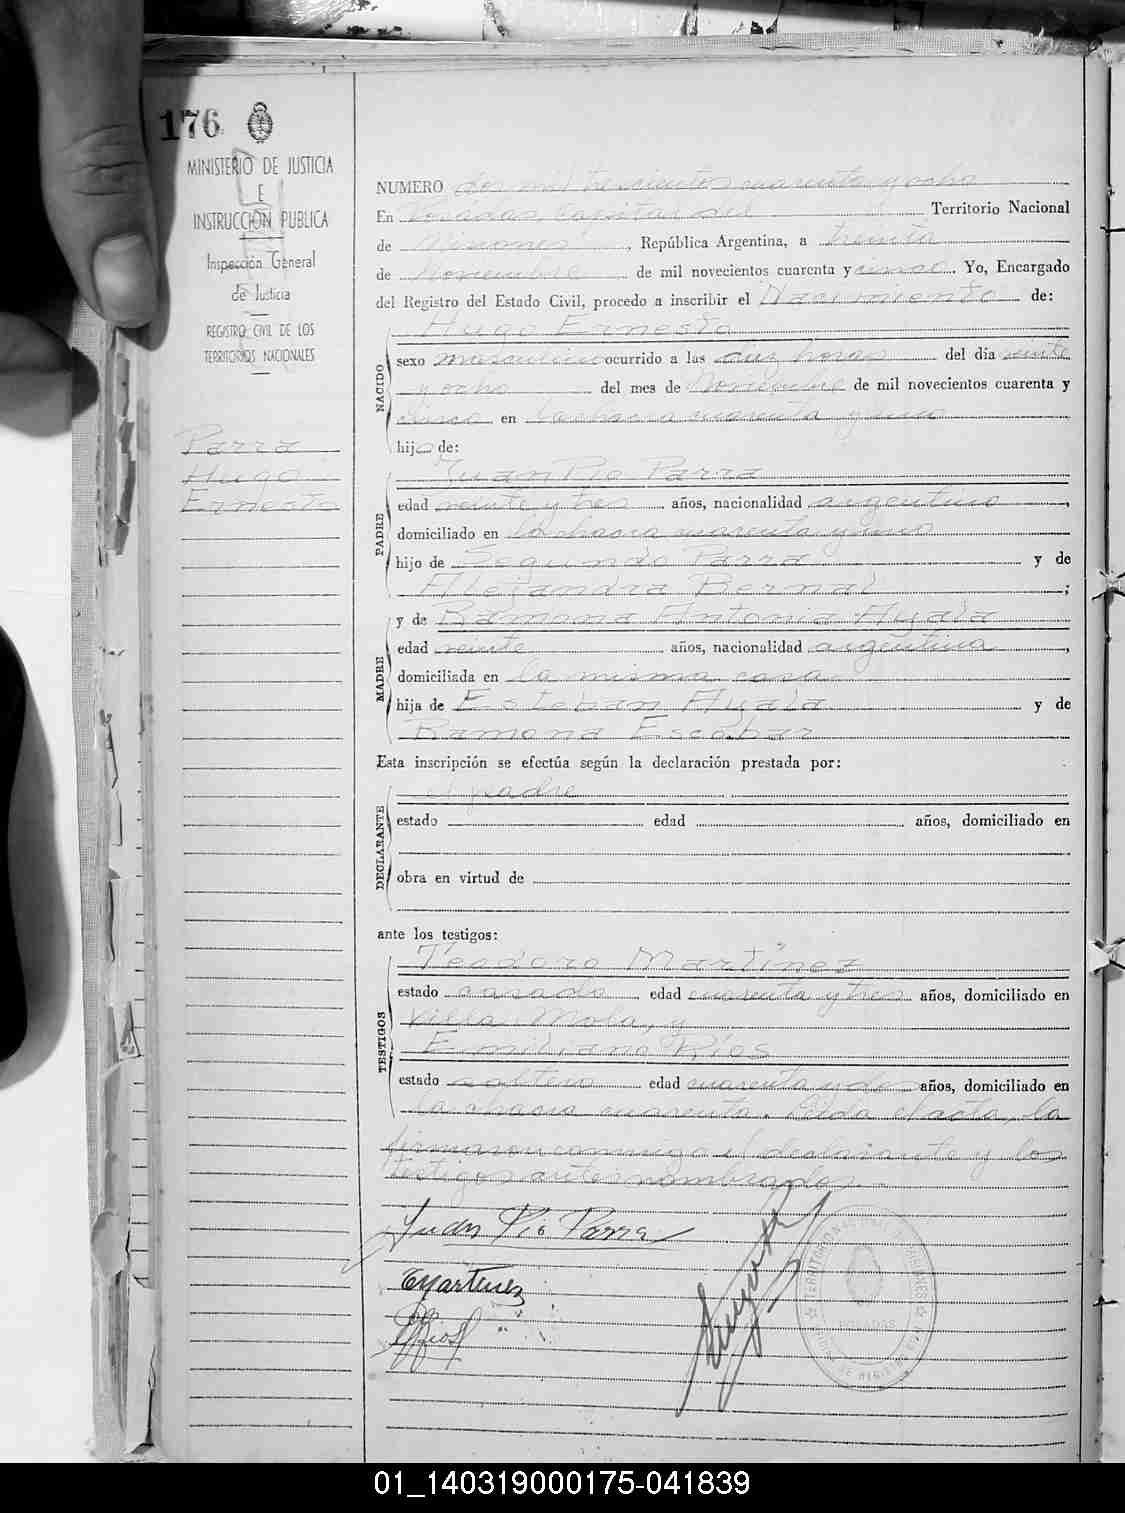 176
MINISTERIO DE JUSTICIA
E
INSTRUCCIÓN PUBLICA
Inspección General
de Justicia
REGISTRO CIVIL DE LOS
TERRITORIOS NACIONALES
Parra
Hugo
Ernesto
NUMERO dos mil trescientos cuarenta y ocho
En Posadas Capital del Territorio Nacional
de Misiones, República Argentina, a treinta
de Noviembre de mil novecientos cuarenta y cinco. Yo, Encargado
del Registro del Estado Civil, procedo a inscribir el Nacimiento de:
NACIDO
Hugo Ernesto
sexo masculino ocurrido a las diez horas del día veinte
y ocho del mes de Noviembre de mil novecientos cuarenta y
cinco en la chacra cuarenta y uno
hijo de:
PADRE
Juan Pio Parra
edad veinte y tres años, nacionalidad argentino,
domiciliado en la chacra cuarenta y uno
hijo de Segundo Parra y de
Alejandra Bernal;
MADRE
y de Ramona Antonia Ayala
edad veinte años, nacionalidad argentina,
domiciliada en la misma casa
hija de Esteban Ayala y de
Ramona Escobar
Esta inscripción se efectúa según la declaración prestada por:
DECLARANTE
el padre
estado edad años, domiciliado en
obra en virtud de
ante los testigos:
TESTIGOS
Teodoro Martinez
estado casado edad cuarenta y tres años, domiciliado en
Villa Mola, y
Emiliano Ríos
estado soltero edad cuarenta y dos años, domiciliado en
la chacra cuarenta. Leida el acta, la
firmaron conmigo el declarante y los
testigos antes nombrados.-
Juan Pio Parra
TMartinez
ERios
TERRITORIO NACIONAL DE MISIONES
POSADAS
01_140319000175-041839